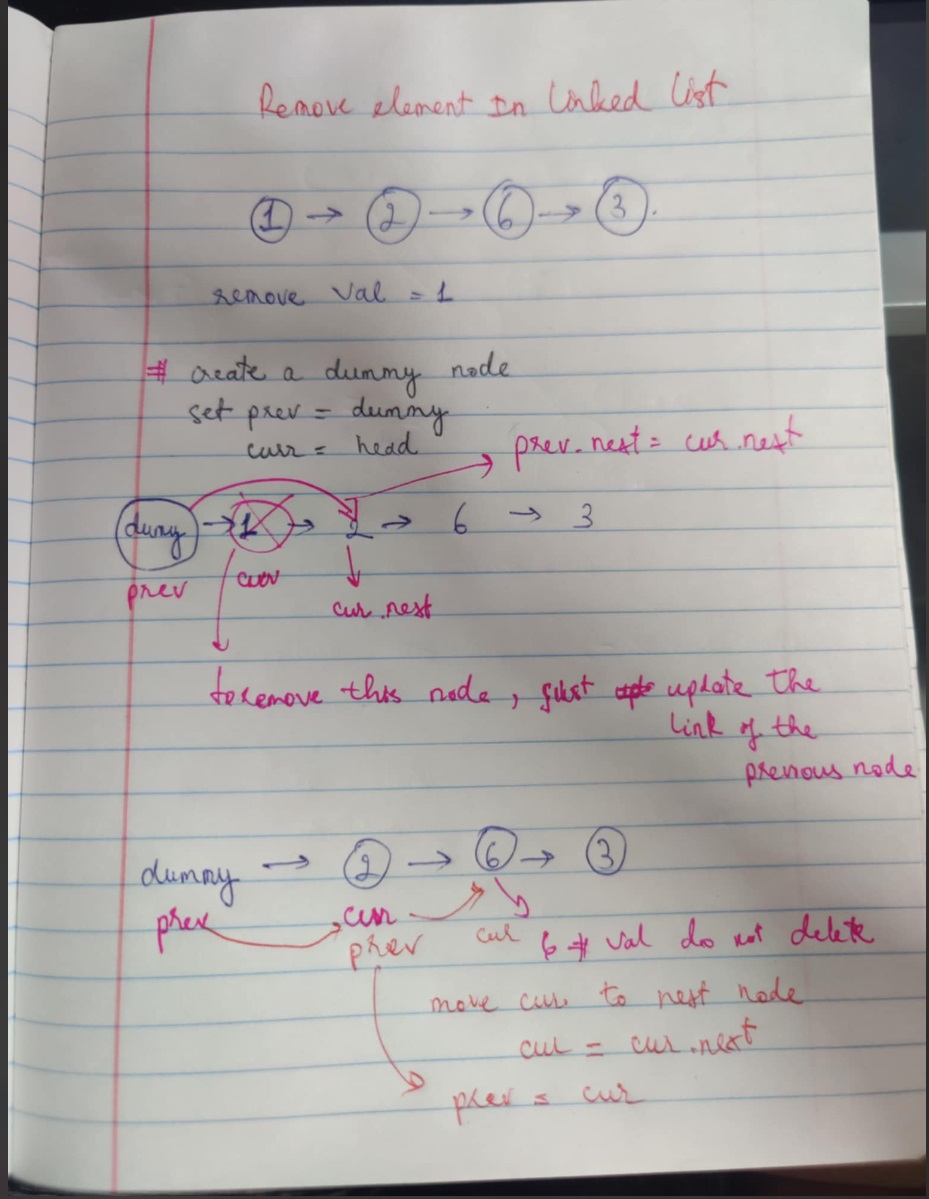 Remove element In Linked List
1 → 2 → 6 → 3.
remove val = 1
# create a dummy node
set prev = dummy
curr = head
prev.next = cur.next
dumy → 1 → 2 → 6 → 3
prev
curr
cur.next
to remove this node, just update the
link of the
previous node
dummy → 2 → 6 → 3
prev
curr
prev
cur
6 ≠ val do not delete
move cur to next node
cur = cur.next
prev = cur